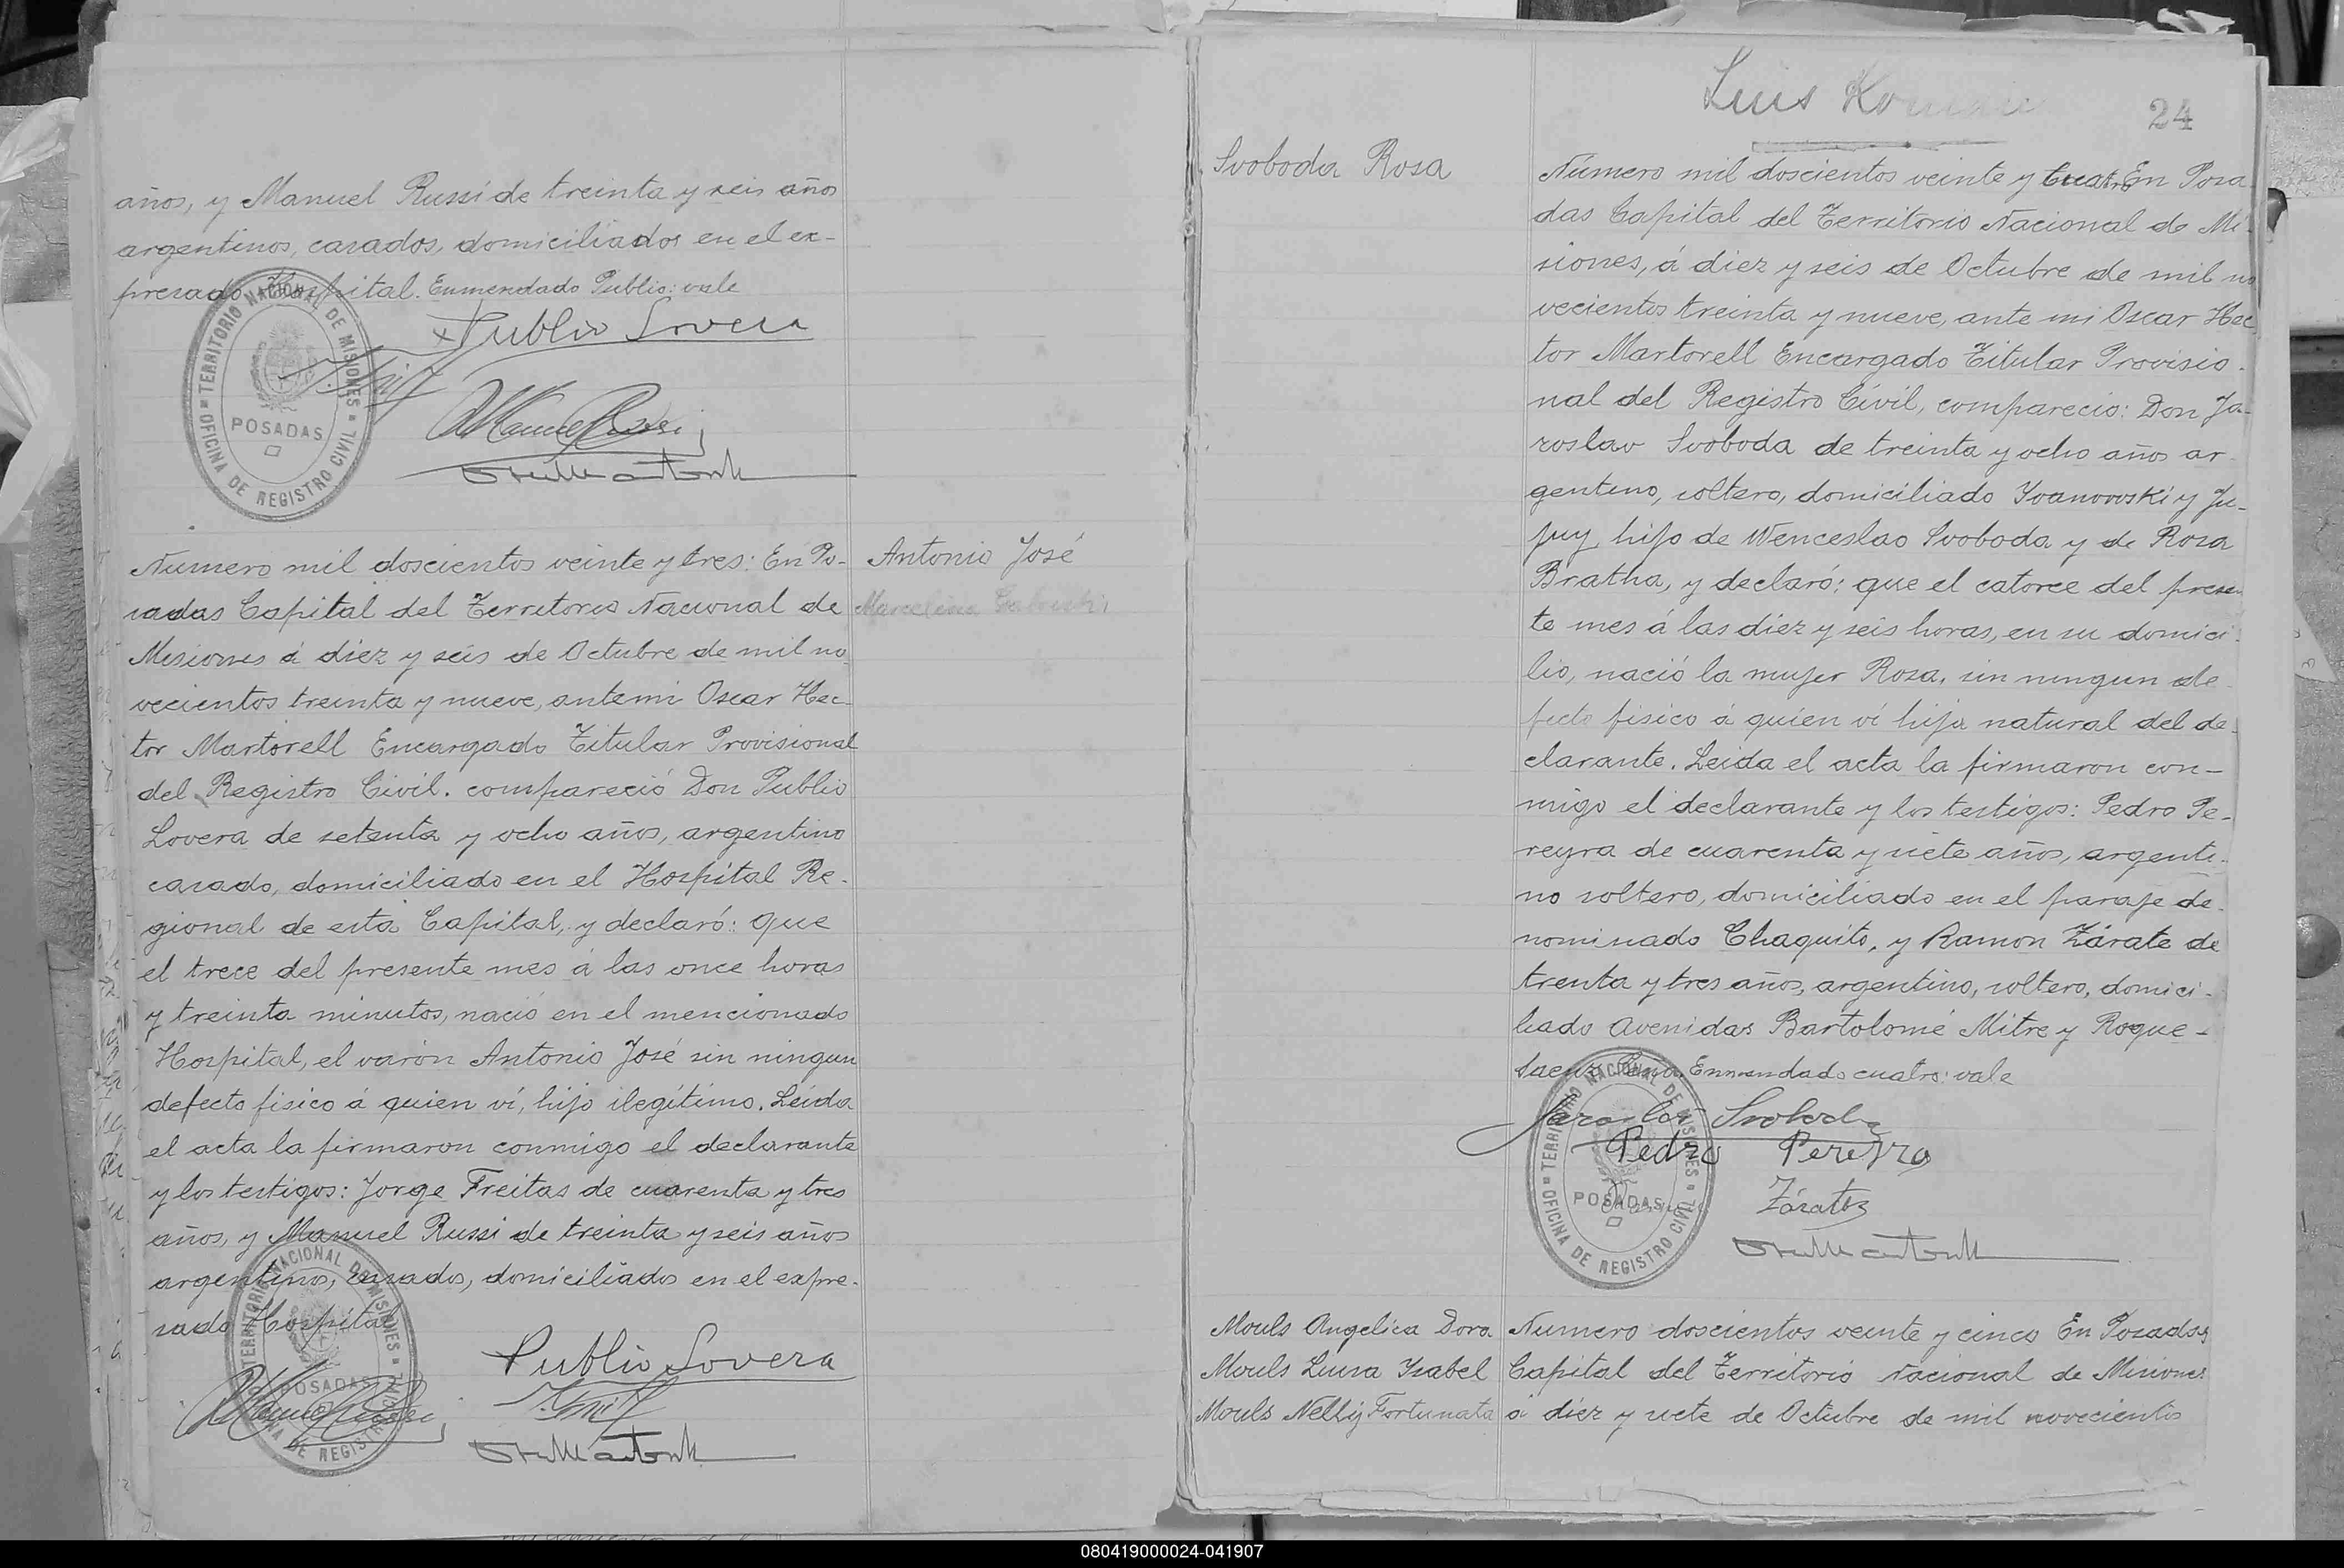 años, y Manuel Russi de treinta y seis años
argentinos, casados, domiciliados en el ex-
presado Hospital. Enmendado Publio: vale
Publio Lovera
TERRITORIO NACIONAL DE MISIONES
POSADAS
OFICINA DE REGISTRO CIVIL
Numero mil doscientos veinte y tres: En Po-
sadas Capital del Territorio Nacional de
Misiones á diez y seis de Octubre de mil no
vecientos treinta y nueve, ante mi Oscar Hec-
tor Martorell Encargado Titular Provisional
del Registro Civil. compareció Don Publio
Lovera de setenta y ocho años, argentino
casado, domiciliado en el Hospital Re-
gional de esta Capital, y declaró: que
el trece del presente mes á las once horas
y treinta minutos, nació en el mencionado
Hospital, el varón Antonio José sin ningun
defecto fisico á quien ví, hijo ilegítimo. Leida
el acta la firmaron conmigo el declarante
y los testigos: Jorge Freitas de cuarenta y tres
años, y Manuel Russi de treinta y seis años
argentinos, casados, domiciliados en el expre-
sado Hospital
Publio Lovera
TERRITORIO NACIONAL DE MISIONES
POSADAS
OFICINA DE REGISTRO CIVIL
Antonio José
Marcelino
Luis
24
Svoboda Rosa
Número mil doscientos veinte y cuatro En Posa
das Capital del Territorio Nacional de Mi-
siones, á diez y seis de Octubre de mil no
vecientos treinta y nueve, ante mi Oscar Hec
tor Martorell Encargado Titular Provisio-
nal del Registro Civil, compareció: Don Ja-
roslav Svoboda de treinta y ocho años ar-
gentino, soltero, domiciliado Yvanovoski y Ju-
juy, hijo de Wenceslao Svoboda y de Rosa
Bratha, y declaró: que el catorce del presen
te mes á las diez y seis horas, en su domici-
lio, nació la mujer Rosa, sin ningun de-
fecto fisico á quien ví hija natural del de-
clarante. Leida el acta la firmaron con-
migo el declarante y los testigos: Pedro Pe-
reyra de cuarenta y siete años, argenti-
no soltero, domiciliado en el paraje de-
nominado Chaquito, y Ramon Zárate de
trenta y tres años, argentino, soltero, domici-
liado Avenidas Bartolomé Mitre y Roque-
Saenz Peña. Enmendado cuatro: vale
Jaroslav Svoboda
Pedro Pereyra
Zárate
TERRITORIO NACIONAL DE MISIONES
POSADAS
OFICINA DE REGISTRO CIVIL
Mouls Angelica Dora
Mouls Luisa Ysabel
Mouls Nelly Fortunata
Numero doscientos veinte y cinco En Posadas
Capital del Territorio Nacional de Misiones
á diez y siete de Octubre de mil novecientos
080419000024-041907